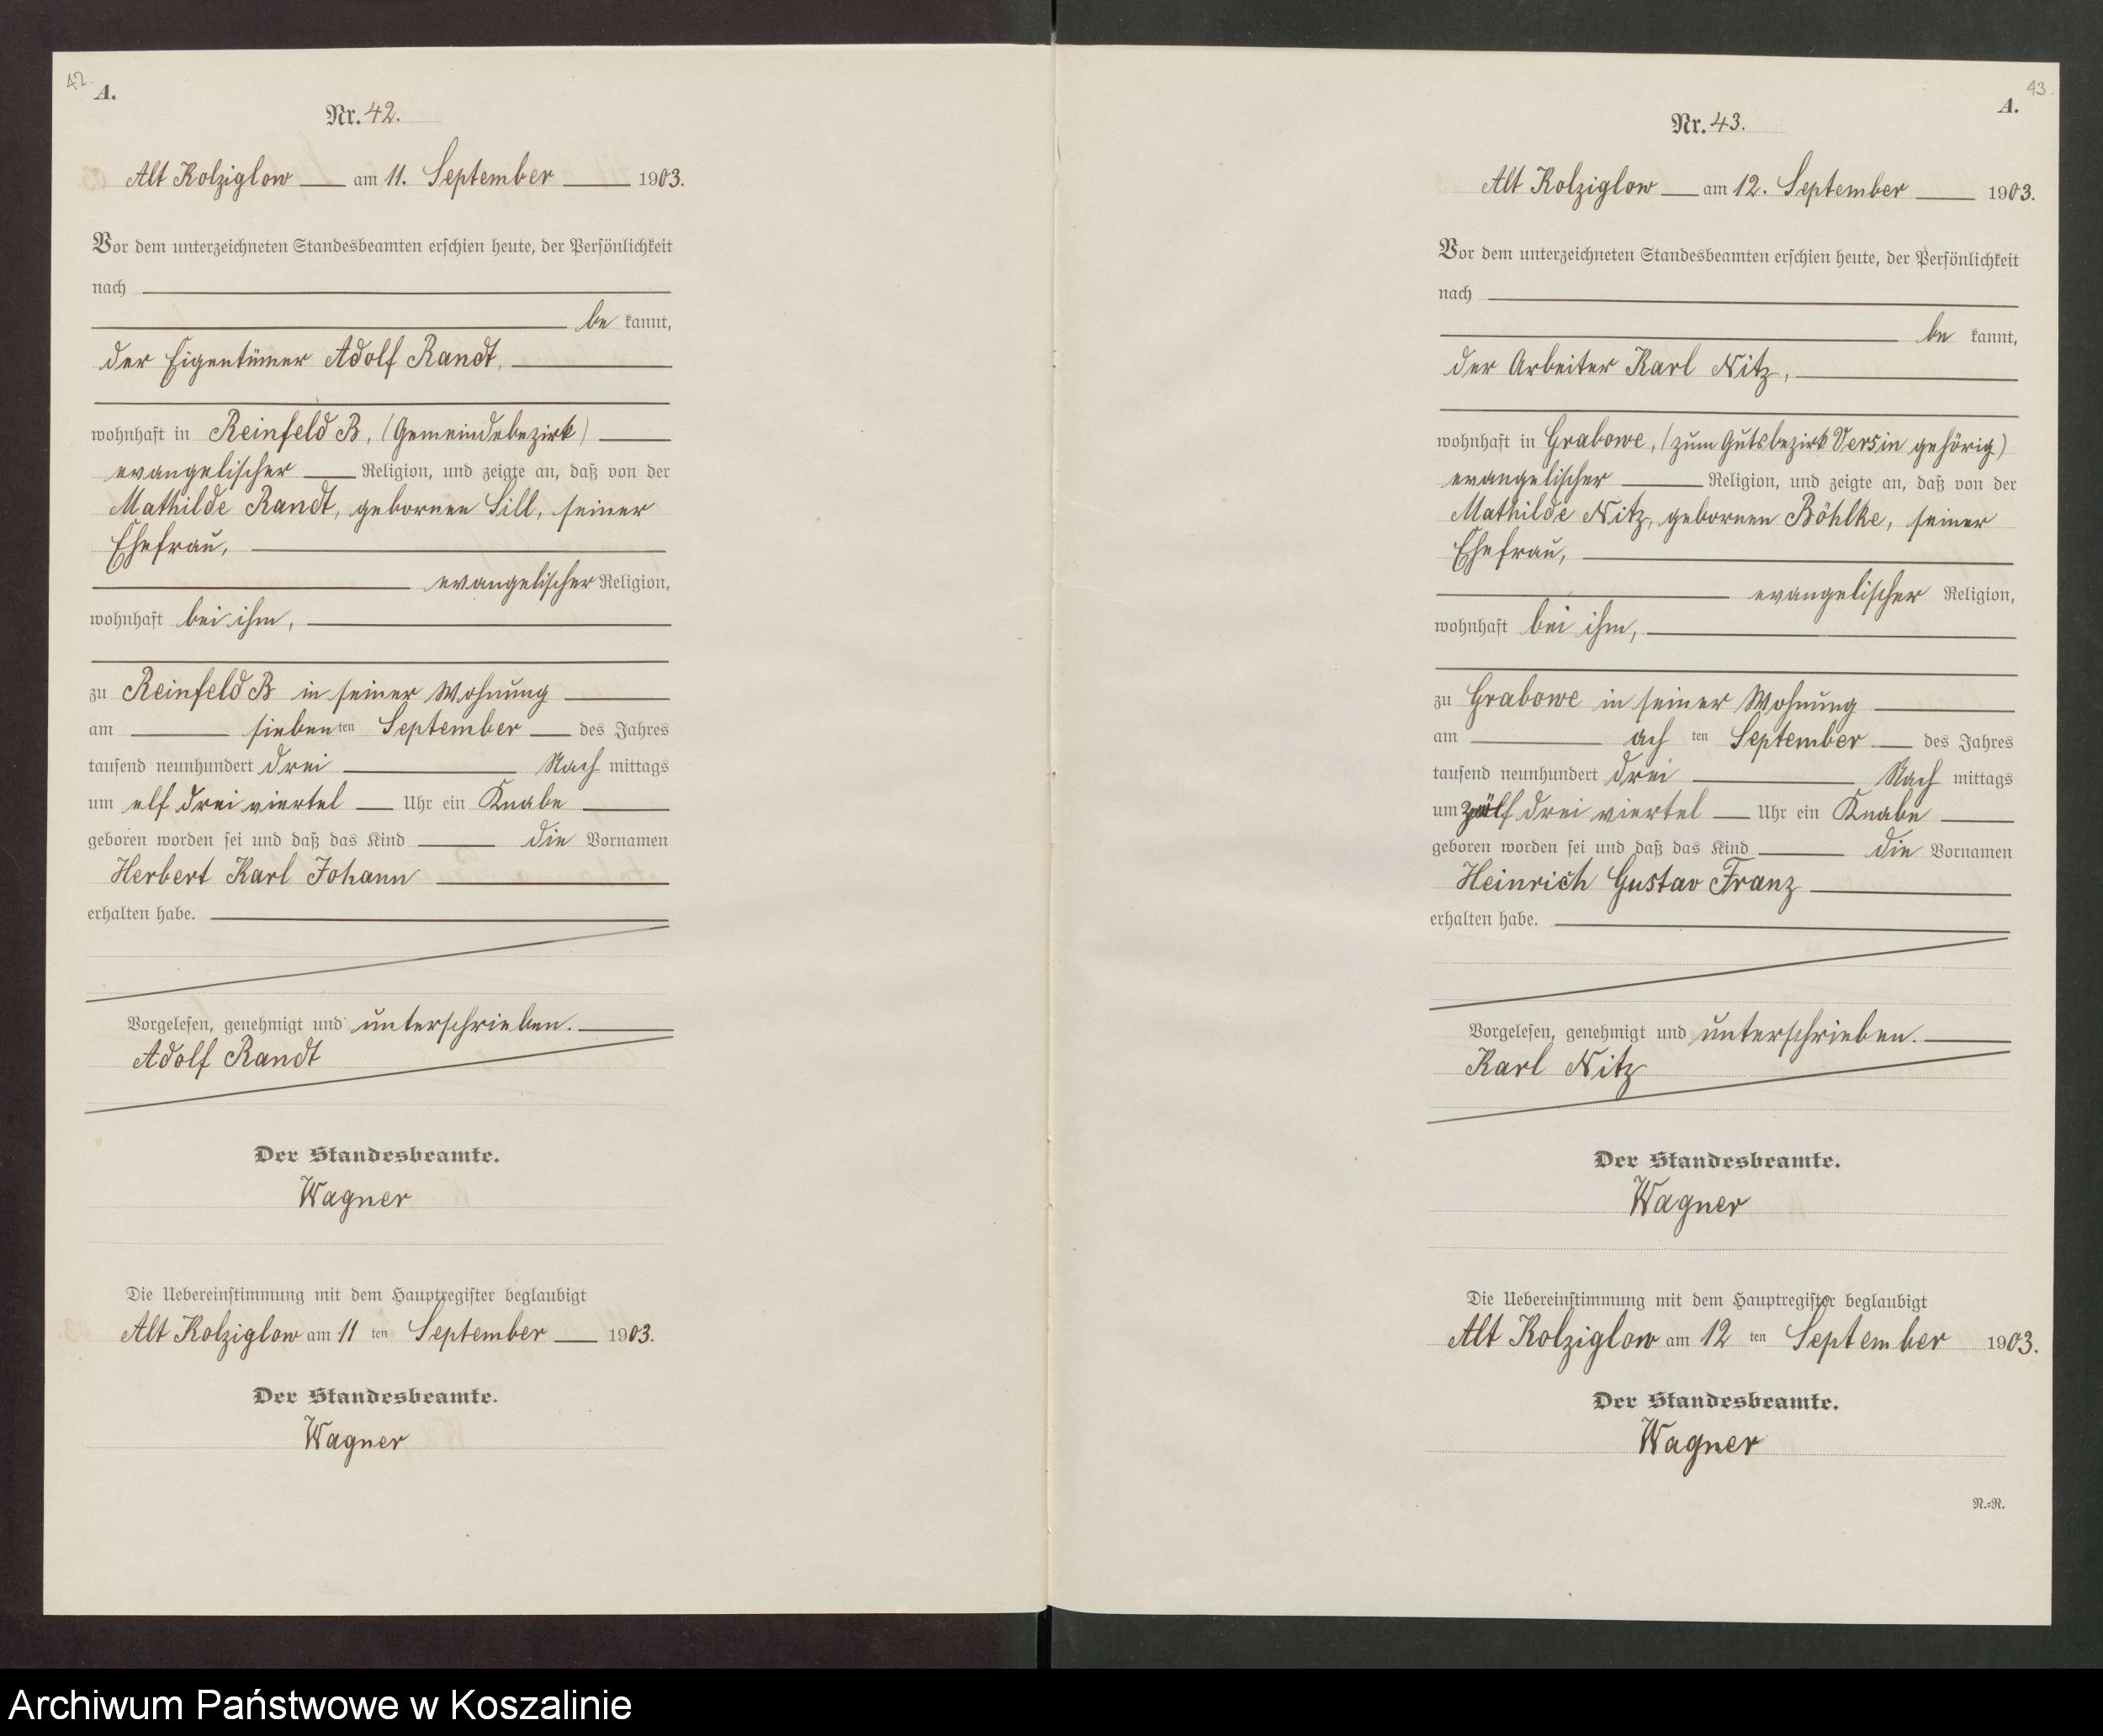 42.
A.
Nr. 42.
Alt Kolziglow am 11. September 1903.
Vor dem unterzeichneten Standesbeamten erschien heute, der Persönlichkeit
nach
be kannt,
der Eigentümer Adolf Randt,
wohnhaft in Reinfeld B, (Gemeindebezirk)
evangelischer Religion, und zeigte an, daß von der
Mathilde Randt, gebornen Sill, seiner
Ehefrau,
evangelischer Religion,
wohnhaft bei ihm,
zu Reinfeld B in seiner Wohnung
am siebenten September des Jahres
tausend neunhundert drei Nach mittags
um elf drei viertel Uhr ein Knabe
geboren worden sei und daß das Kind die Vornamen
Herbert Karl Johann
erhalten habe.
Vorgelesen, genehmigt und unterschrieben.
Adolf Randt
Der Standesbeamte.
Wagner
Die Uebereinstimmung mit dem Hauptregister beglaubigt
Alt Kolziglow am 11 ten September 1903.
Der Standesbeamte.
Wagner
43.
A.
Nr. 43.
Alt Kolziglow am 12. September 1903.
Vor dem unterzeichneten Standesbeamten erschien heute, der Persönlichkeit
nach
be kannt,
der Arbeiter Karl Nitz,
wohnhaft in Grabowe, (zum Gutsbezirk Versin gehörig)
evangelischer Religion, und zeigte an, daß von der
Mathilde Nitz, gebornen Böhlke, seiner
Ehefrau,
evangelischer Religion,
wohnhaft bei ihm,
zu Grabowe in seiner Wohnung
am ach ten September des Jahres
tausend neunhundert drei Nach mittags
um drei viertel Uhr ein Knabe
geboren worden sei und daß das Kind die Vornamen
Heinrich Gustav Franz
erhalten habe.
Vorgelesen, genehmigt und unterschrieben.
Karl Nitz
Der Standesbeamte.
Wagner
Die Uebereinstimmung mit dem Hauptregister beglaubigt
Alt Kolziglow am 12 ten September 1903.
Der Standesbeamte.
Wagner
N.=N.
Archiwum Państwowe w Koszalinie